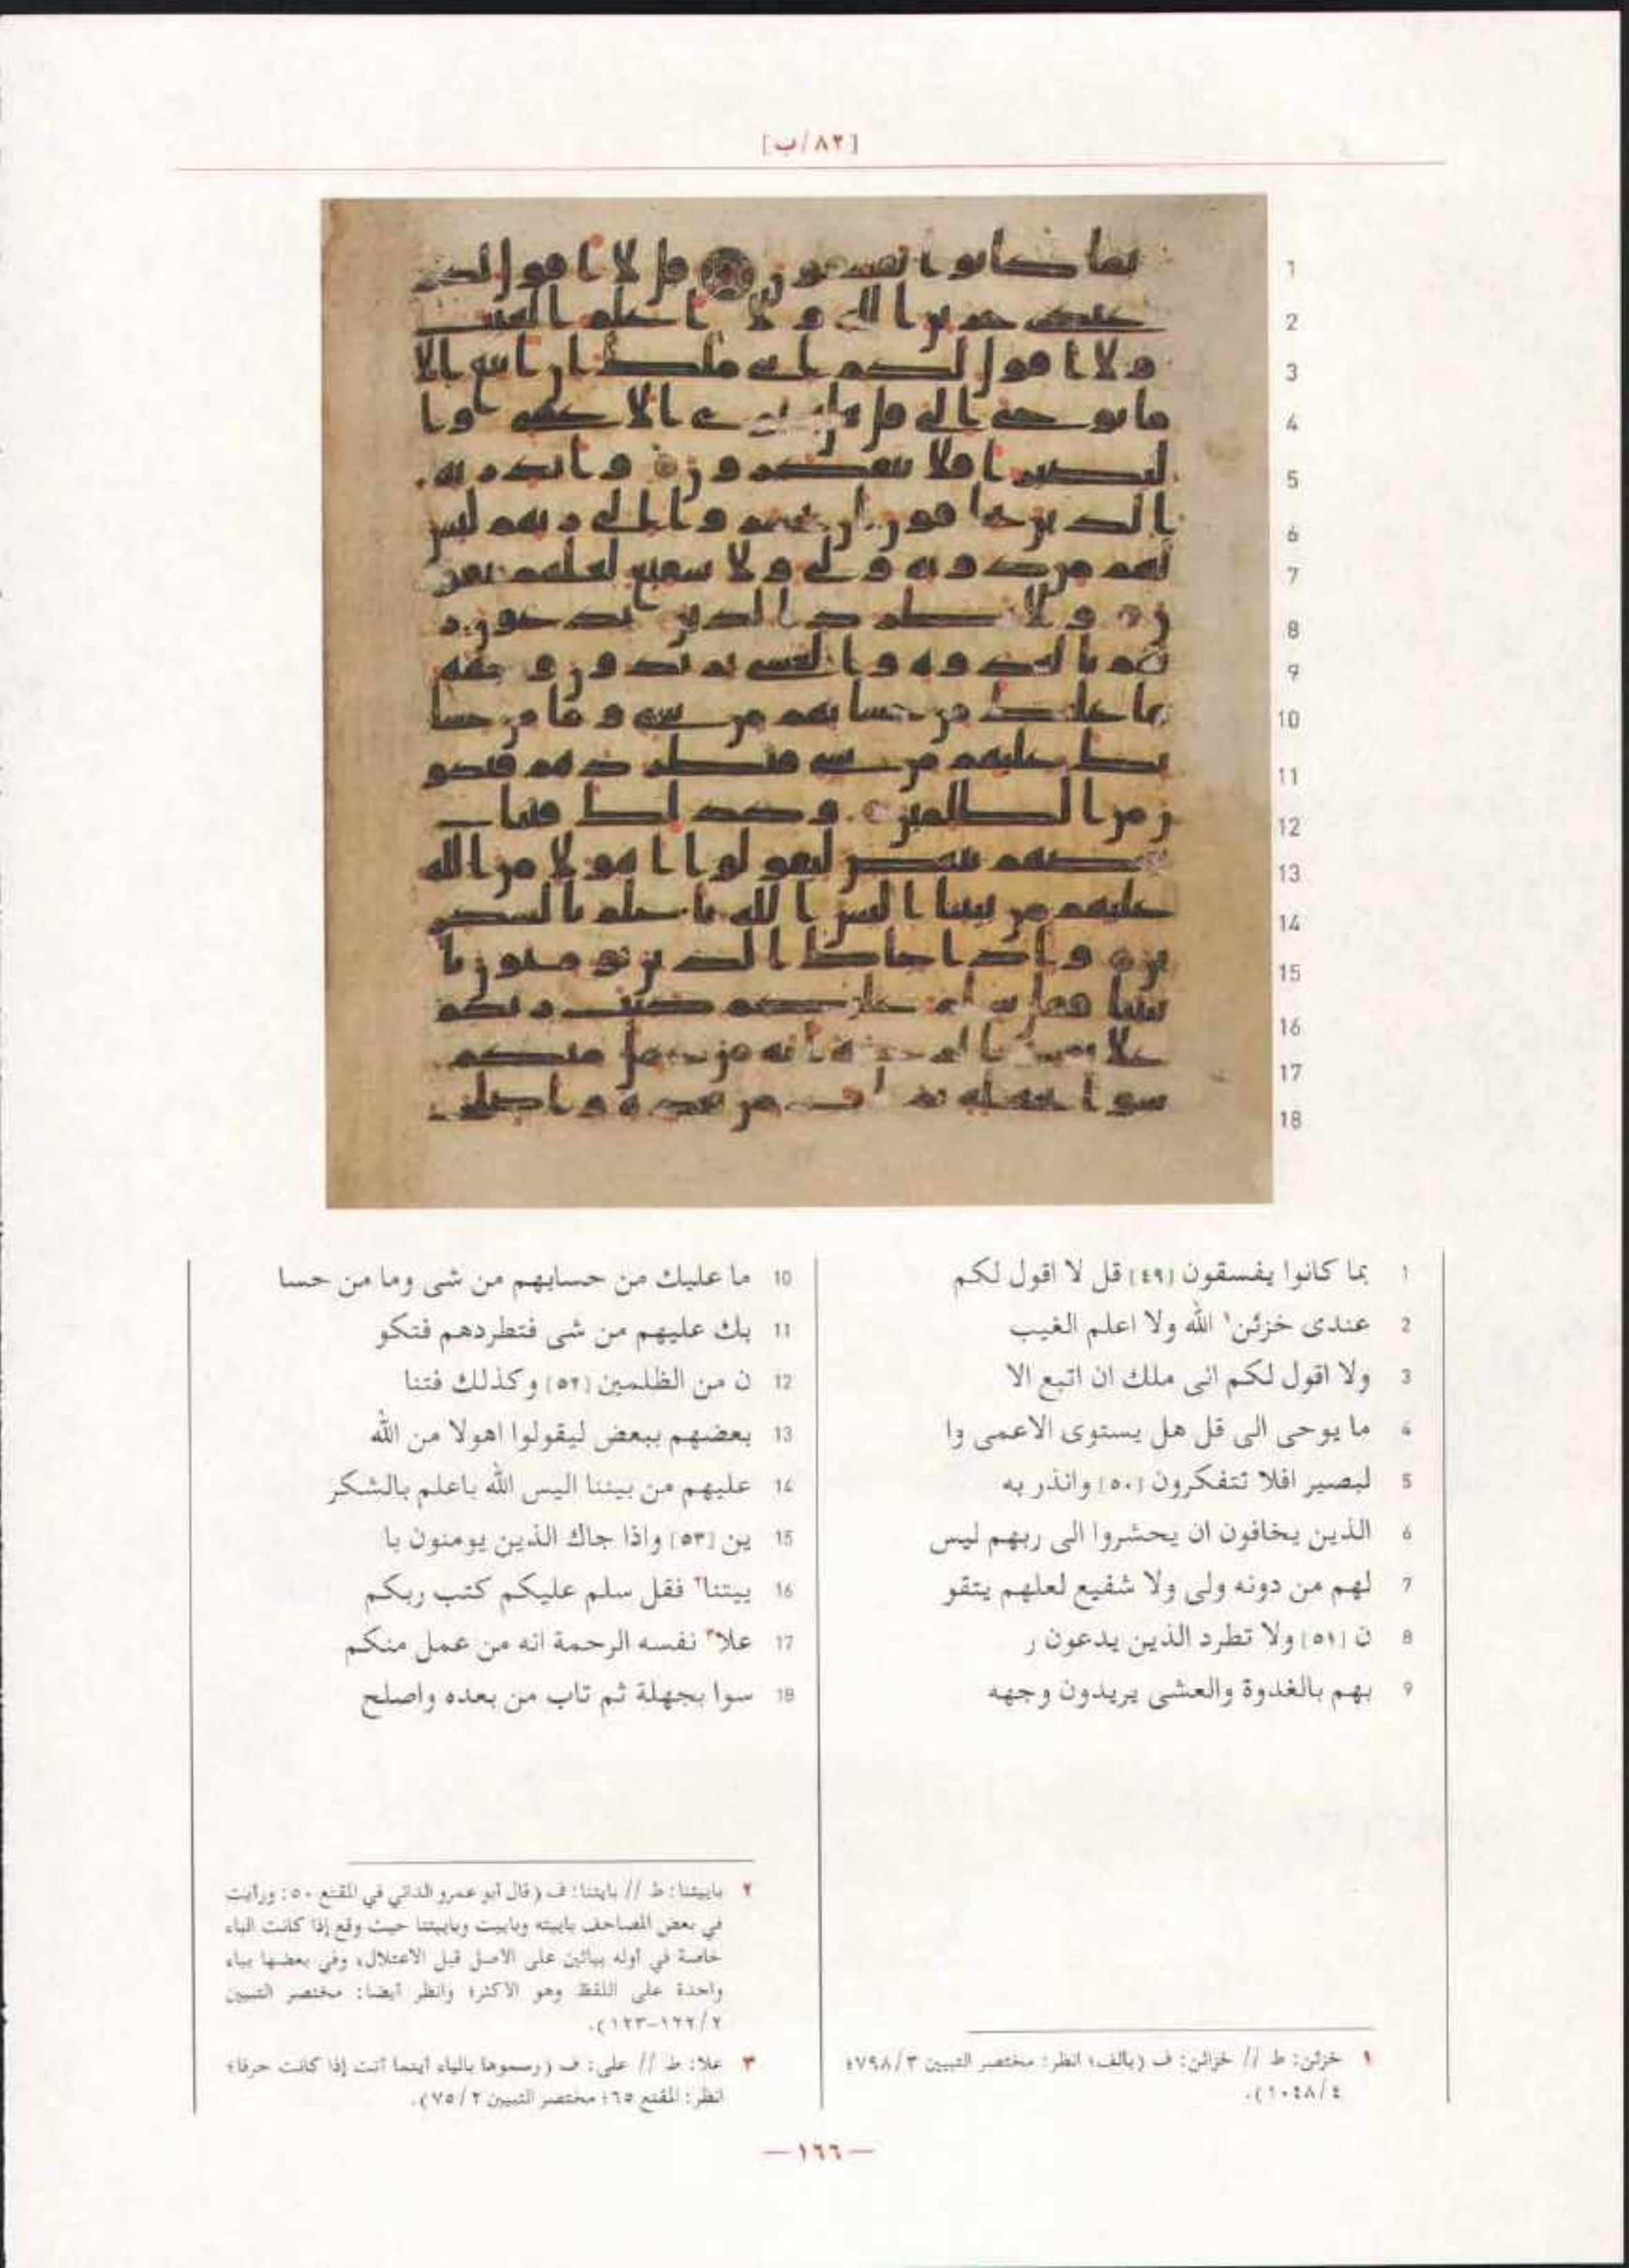 [٨٢/ب]
1 بما كانوا يفسقون [٤٩] قل لا اقول لكم
2 عندى خزئن١ الله ولا اعلم الغيب
3 ولا اقول لكم انى ملك ان اتبع الا
4 ما يوحى الى قل هل يستوى الاعمى وا
5 لبصير افلا تتفكرون [٥٠] وانذر به
6 الذين يخافون ان يحشروا الى ربهم ليس
7 لهم من دونه ولى ولا شفيع لعلهم يتقو
8 ن [٥١] ولا تطرد الذين يدعون ر
9 بهم بالغدوة والعشى يريدون وجهه
10 ما عليك من حسابهم من شى وما من حسا
11 بك عليهم من شى فتطردهم فتكو
12 ن من الظلمين [٥٢] وكذلك فتنا
13 بعضهم ببعض ليقولوا اهولا من الله
14 عليهم من بيننا اليس الله باعلم بالشكر
15 ين [٥٣] واذا جاك الذين يومنون با
16 ييتنا٢ فقل سلم عليكم كتب ربكم
17 علا٣ نفسه الرحمة انه من عمل منكم
18 سوا بجهلة ثم تاب من بعده واصلح
١ خزئن: ط // خزائن: ف (بالف؛ انظر: مختصر التبيين ٧٩٨/٣؛
١٠٤٨/٤).
٢ باييتنا: ط // بايتنا: ف (قال أبو عمرو الداني في المقنع ٥٠: ورأيت
في بعض المصاحف باييته وباييت وباييتنا حيث وقع إذا كانت الباء
خاصة في أوله بيائين على الاصل قبل الاعتلال، وفي بعضها بياء
واحدة على اللفظ وهو الأكثر؛ وانظر أيضا: مختصر التبيين
١٢٢/٢-١٢٣).
٣ علا: ط // على: ف (رسموها بالياء أينما أتت إذا كانت حرفا؛
انظر: المقنع ٦٥؛ مختصر التبيين ٧٥/٢).
— ١٦٦ —